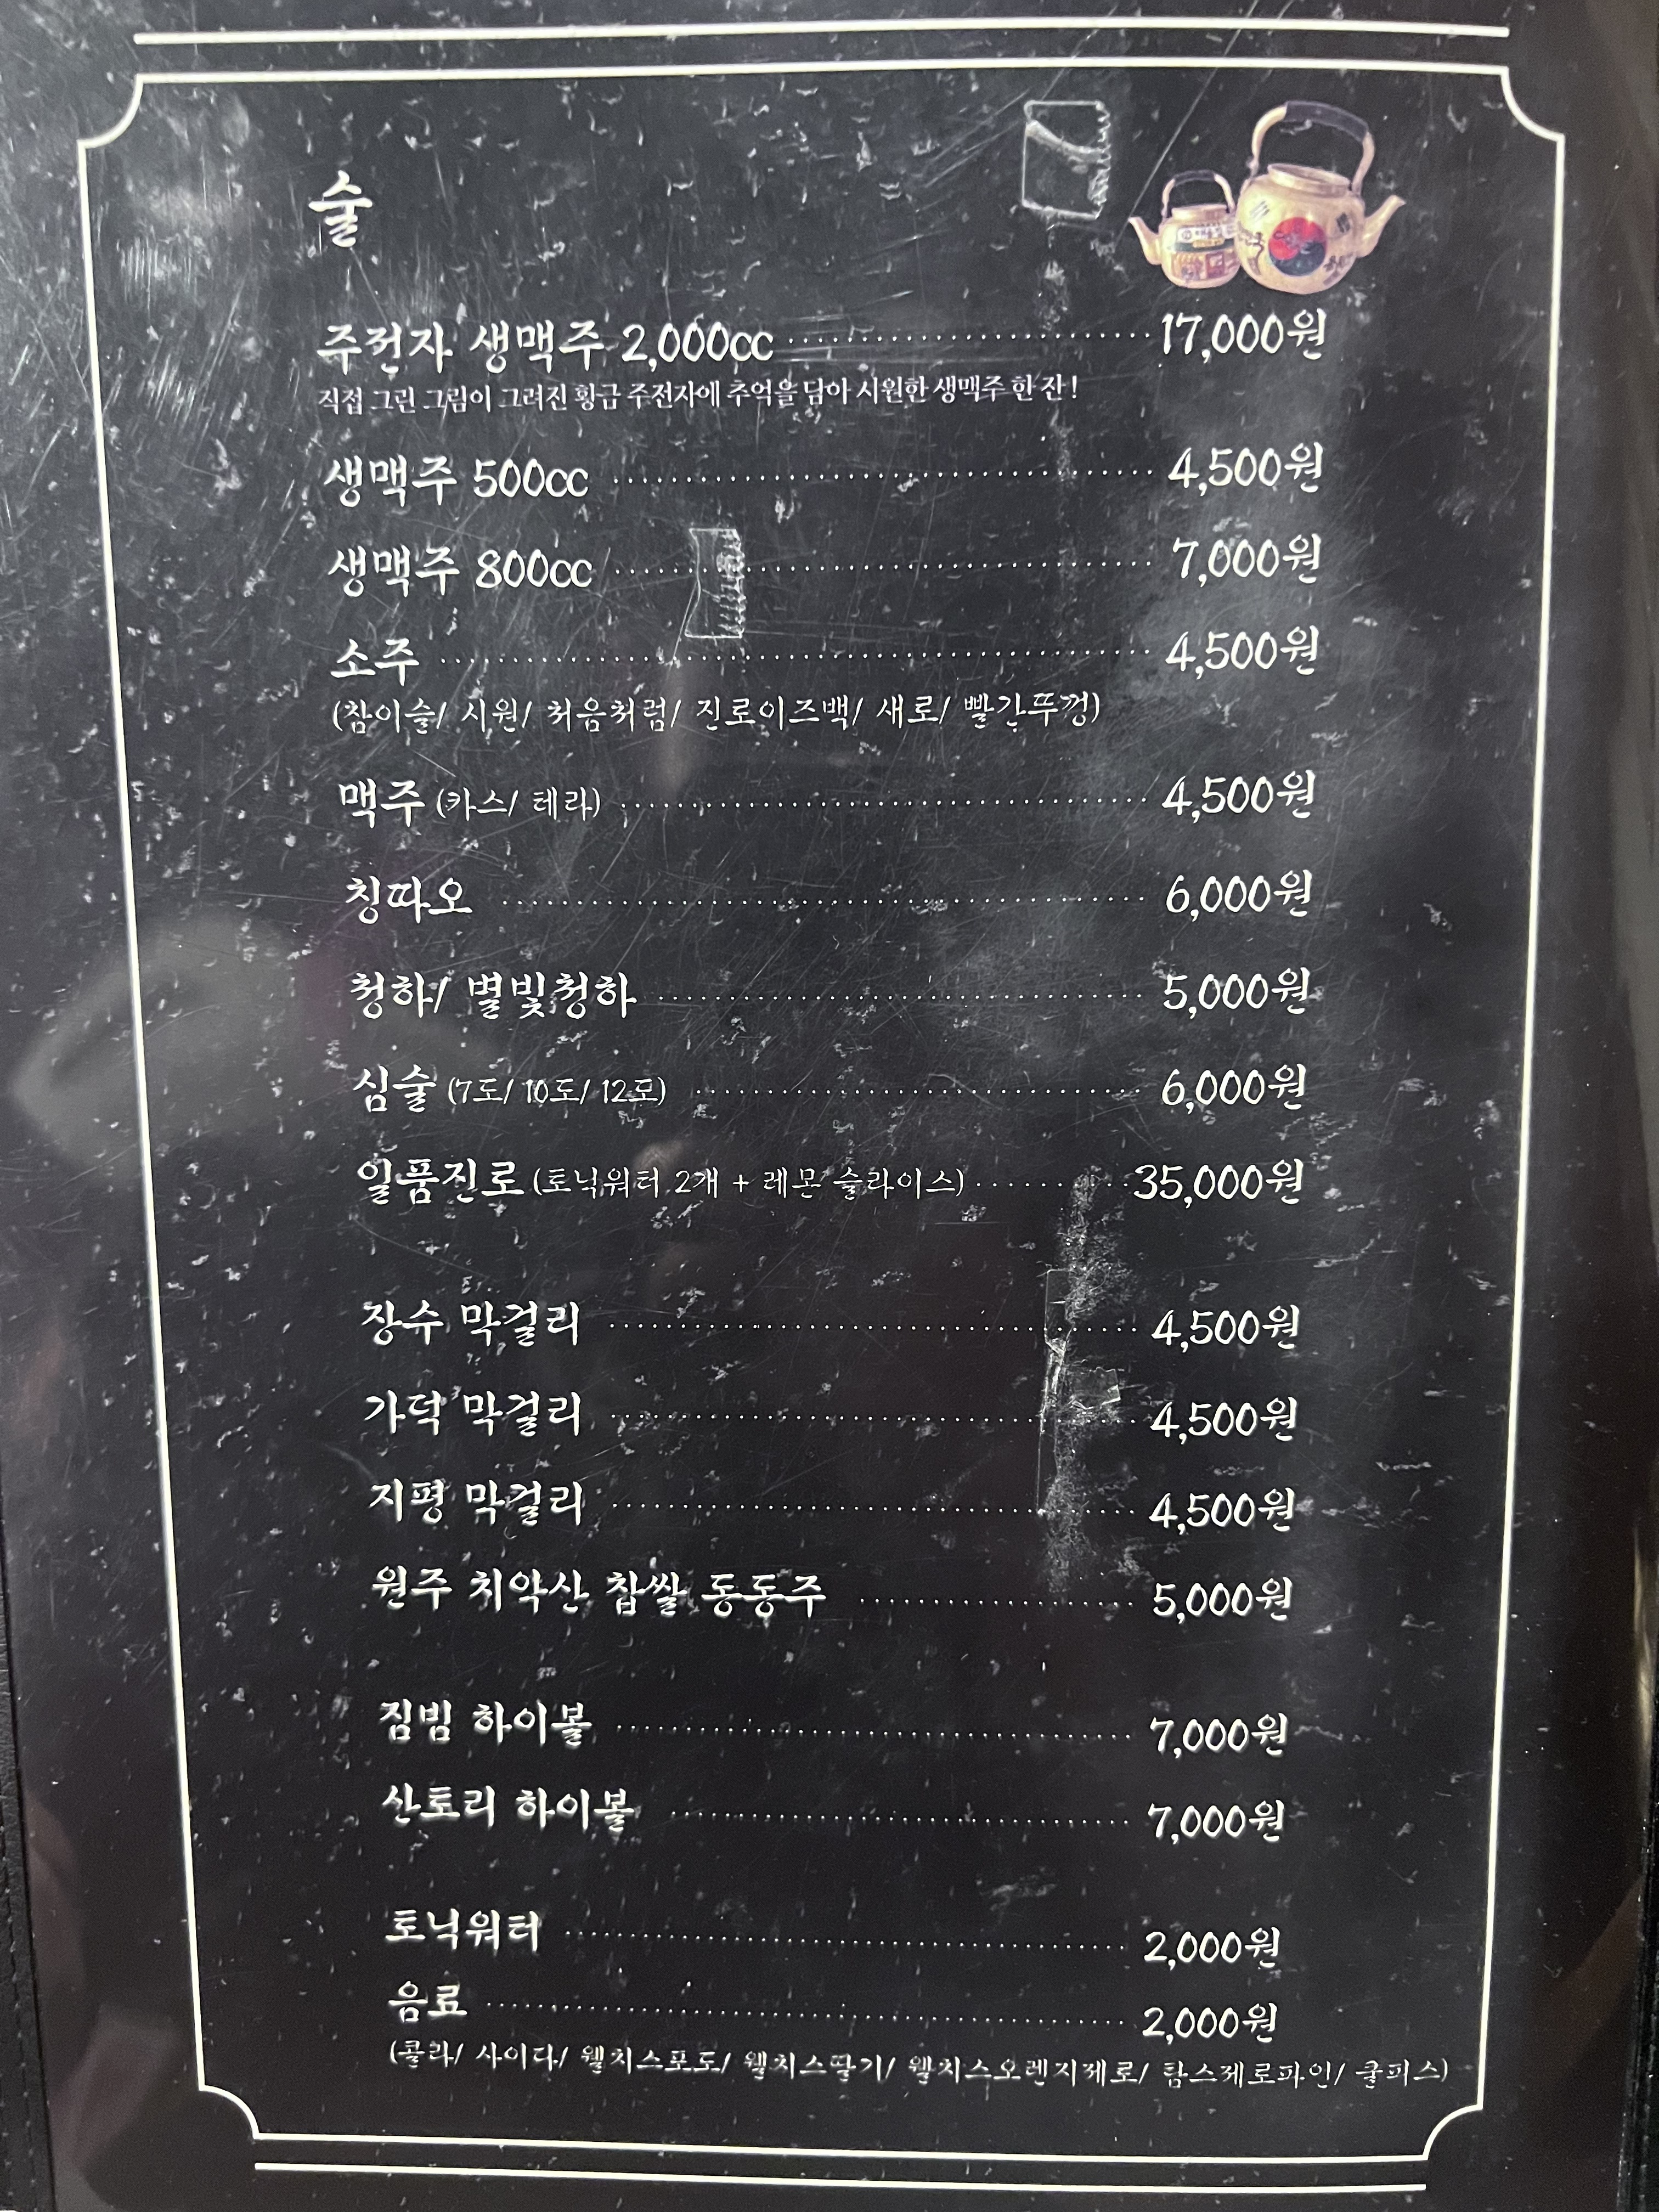 술
주전자 생맥주 2,000cc 17,000원
직접 그린 그림이 그려진 황금 주전자에 추억을 담아 시원한 생맥주 한 잔!
생맥주 500cc 4,500원
생맥주 800cc 7,000원
소주 4,500원
(참이슬/ 시원/ 처음처럼/ 진로이즈백/ 새로/ 빨간뚜껑)
맥주 (카스/ 테라) 4,500원
칭따오 6,000원
청하/ 별빛청하 5,000원
심술 (7도/ 10도/ 12도) 6,000원
일품진로 (토닉워터 2개 + 레몬 슬라이스) 35,000원
장수 막걸리 4,500원
가덕 막걸리 4,500원
지평 막걸리 4,500원
원주 치악산 찹쌀 동동주 5,000원
짐빔 하이볼 7,000원
산토리 하이볼 7,000원
토닉워터 2,000원
음료 2,000원
(콜라/ 사이다/ 웰치스포도/ 웰치스딸기/ 웰치스오렌지제로/ 탐스제로파인/ 쿨피스)